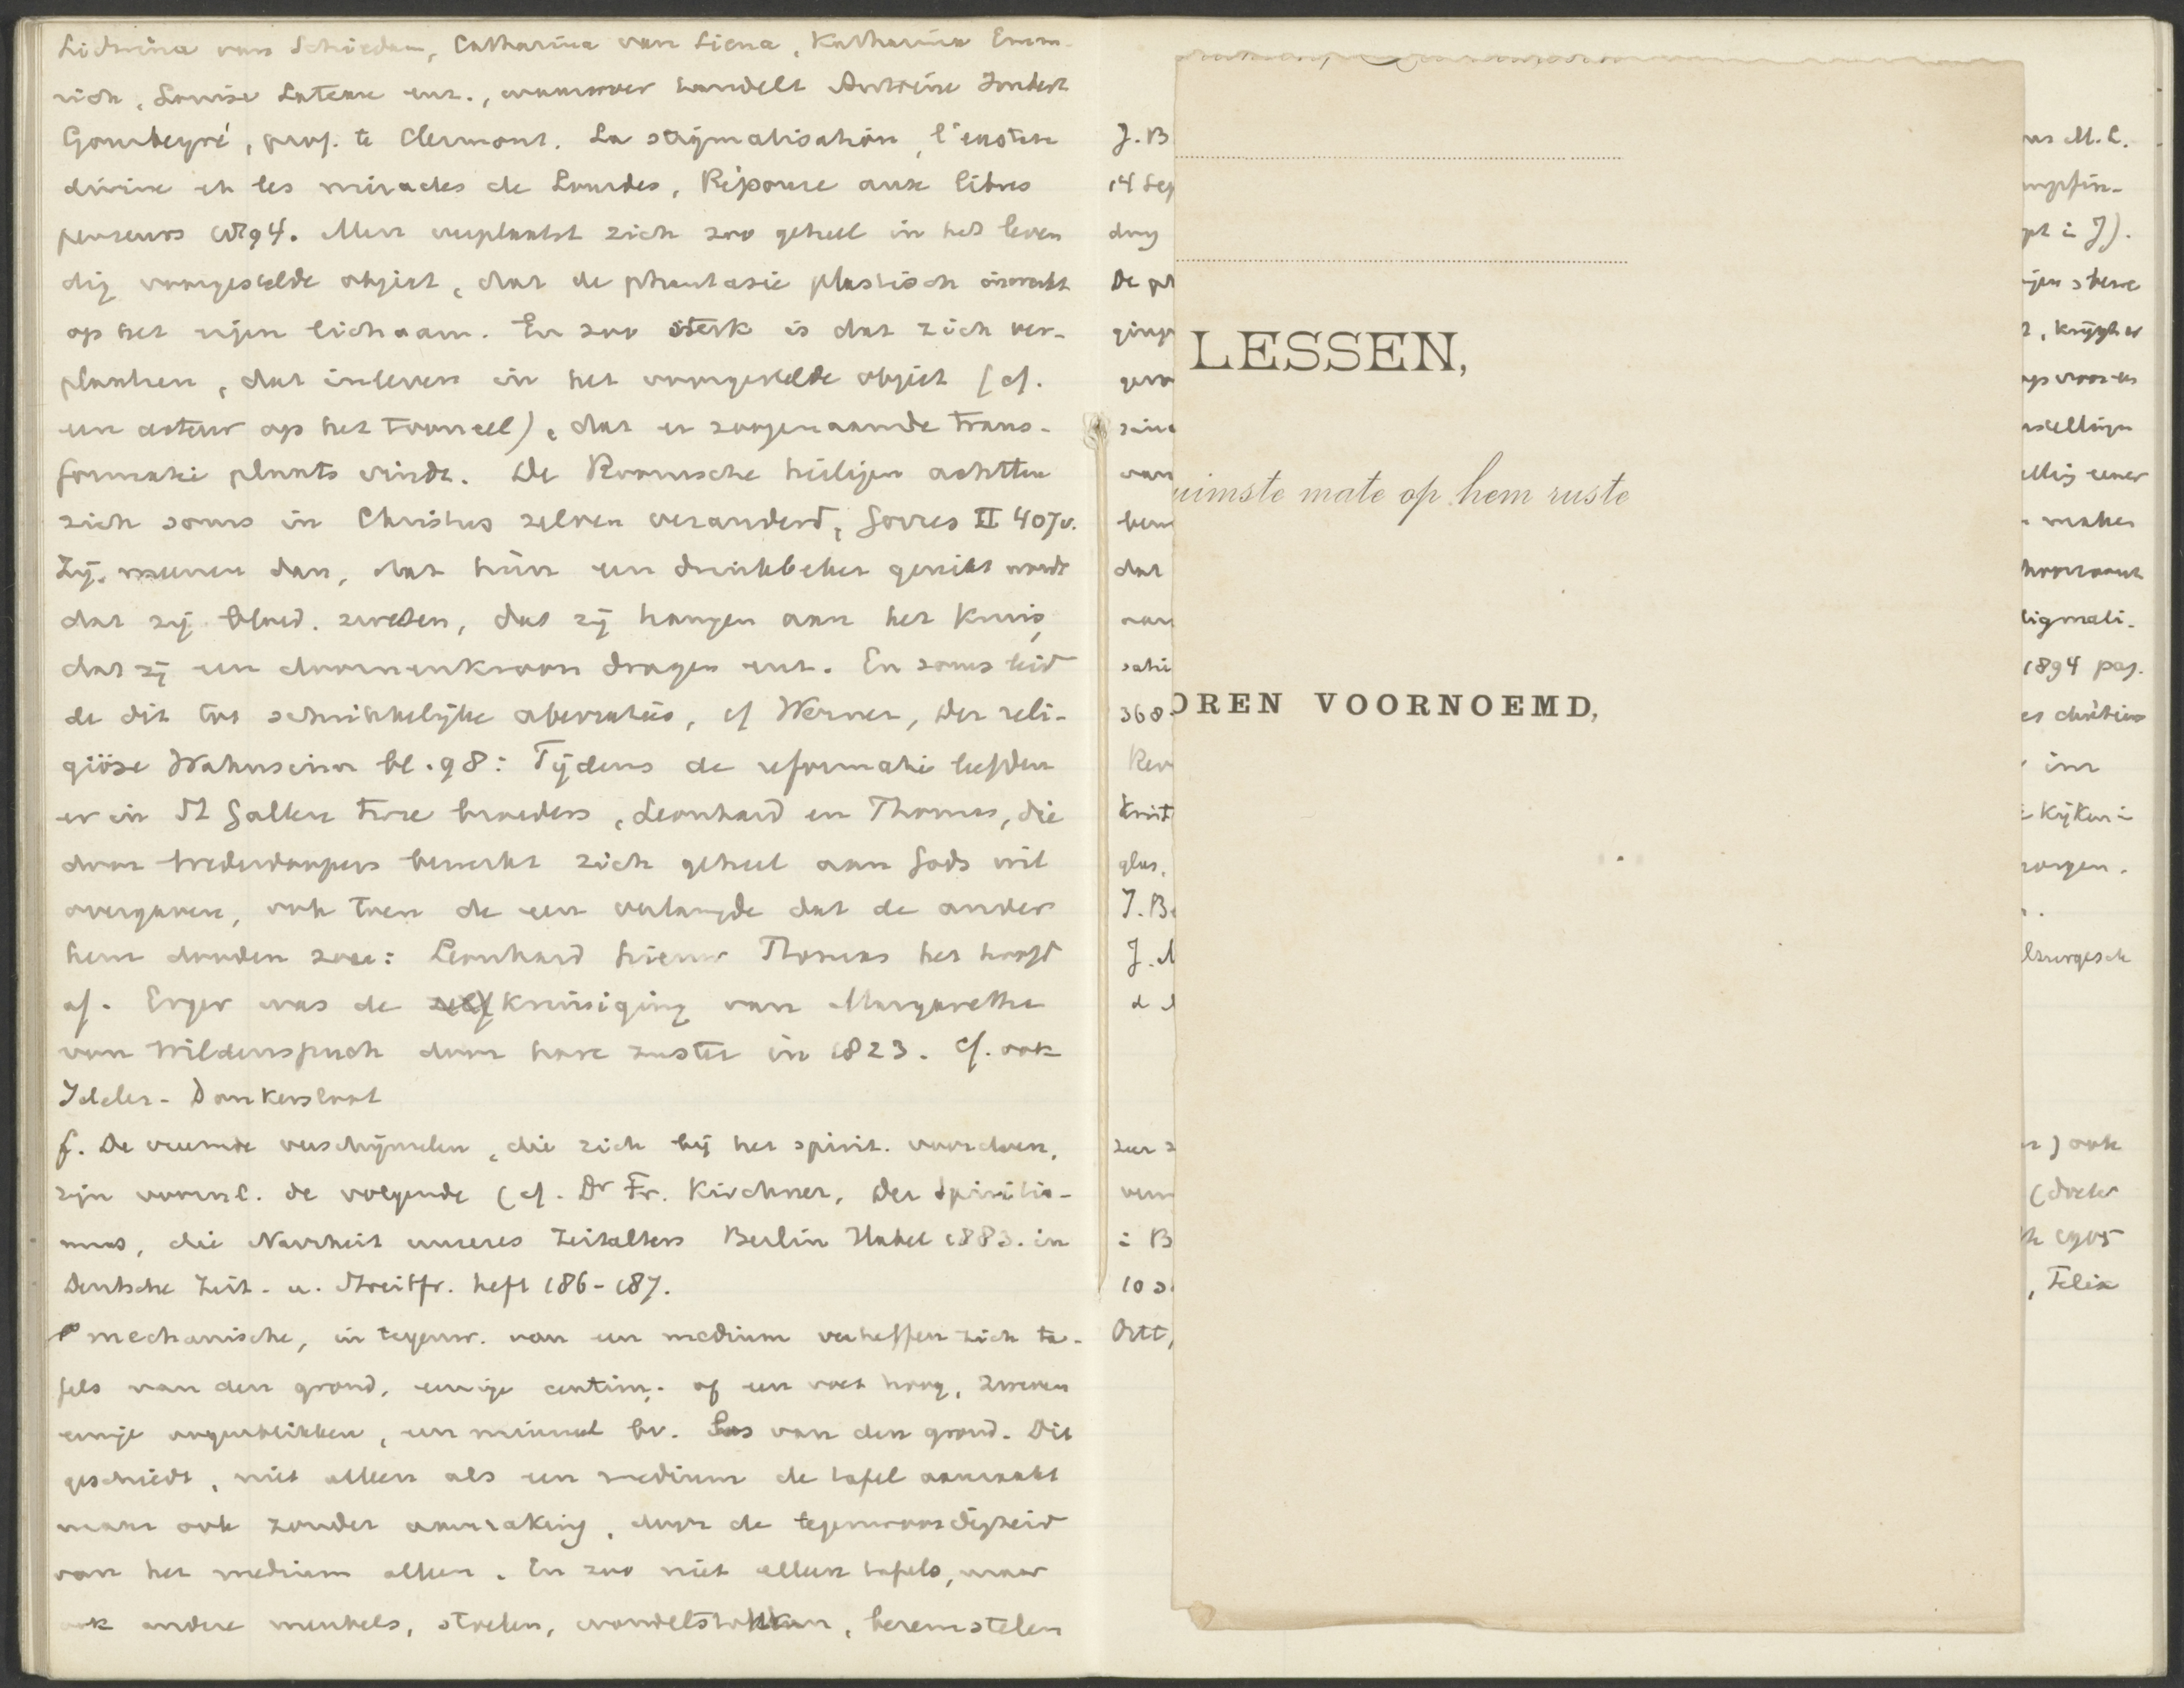 Lidwina van Schiedam, Catharina van Siena, Katharina Emm-
rich, Louise Lateau enz., waarover handelt Antoine Imbert
Gourbeyre, prof. te Clermont. La stigmatisation, l'extase
divine et les miracles de Lourdes, Réponse aux libres
penseurs 1894. Men verplaatst zich zoo geheel in het leven
dig voorgestelde object, dat de phantasie plastisch inwerkt
op het eigen lichaam. En zoo sterk is dat zich ver-
plaatsen, dat inleven in het voorgestelde object (cf.
een acteur op het tooneel), dat er zoogenaamde trans-
formatie plaats vindt. De Roomsche heiligen achtten
zich soms in Christus zelven veranderd, Görres II 407v.
Zij meenen dan, dat hun een drinkbeker gereikt wordt
dat zij bloed zweeten, dat zij hangen aan het kruis,
dat zij een doornenkroon dragen enz. En soms leid
de dit tot schrikkelijke aberraties, cf Werner, Der reli-
giöse Wahnsinn bl. 98: Tijdens de reformatie leefden
er in St Gallen twee broeders, Leonhard en Thomas, die
door Wederdoopers bewerkt zich geheel aan Gods wil
overgaven, ook toen de een verlangde dat de ander
hem dooden zou: Leonhard hieuw Thomas het hoofd
af. Erger was de zelf kruisiging van Margaretha
van Wildenspuch door hare zuster in 1823. Cf. ook
Ideler-Donkersloot
f. De vreemde verschijnselen, die zich bij het spirit. voordoen,
zijn voornl. de volgende (cf. Dr Fr. Kirchner, Der Spiritis-
mus, die Narrheit unseres Zeitalters Berlin Habel 1883. in
Deutsche Zeit- u. Streitfr. heft 186-187.
mechanische, in tegenw. van een medium verheffen zich ta-
fels van den grond, eenige centim. of een voet hoog, zweven
eenige oogenblikken, een minuut bv. los van den grond. Dit
geschiedt, niet alleen als een medium de tafel aanraakt
maar ook zonder aanraking, door de tegenwoordigheid
van het medium alleen. En zoo niet alleen tafels, maar
ook andere meubels, stoelen, wandelstokken, bezemstelen
J. B
14 Sep
De ph
dat
368
glas,
J. B
zeer
10
Ortt,
LESSEN,
uimste mate op hem ruste
OREN VOORNOEMD,
M. L.
pt in J).
, krijgt er
maken
1894 pag.
zorgen.
) ook
(doctor
1905
, Felix